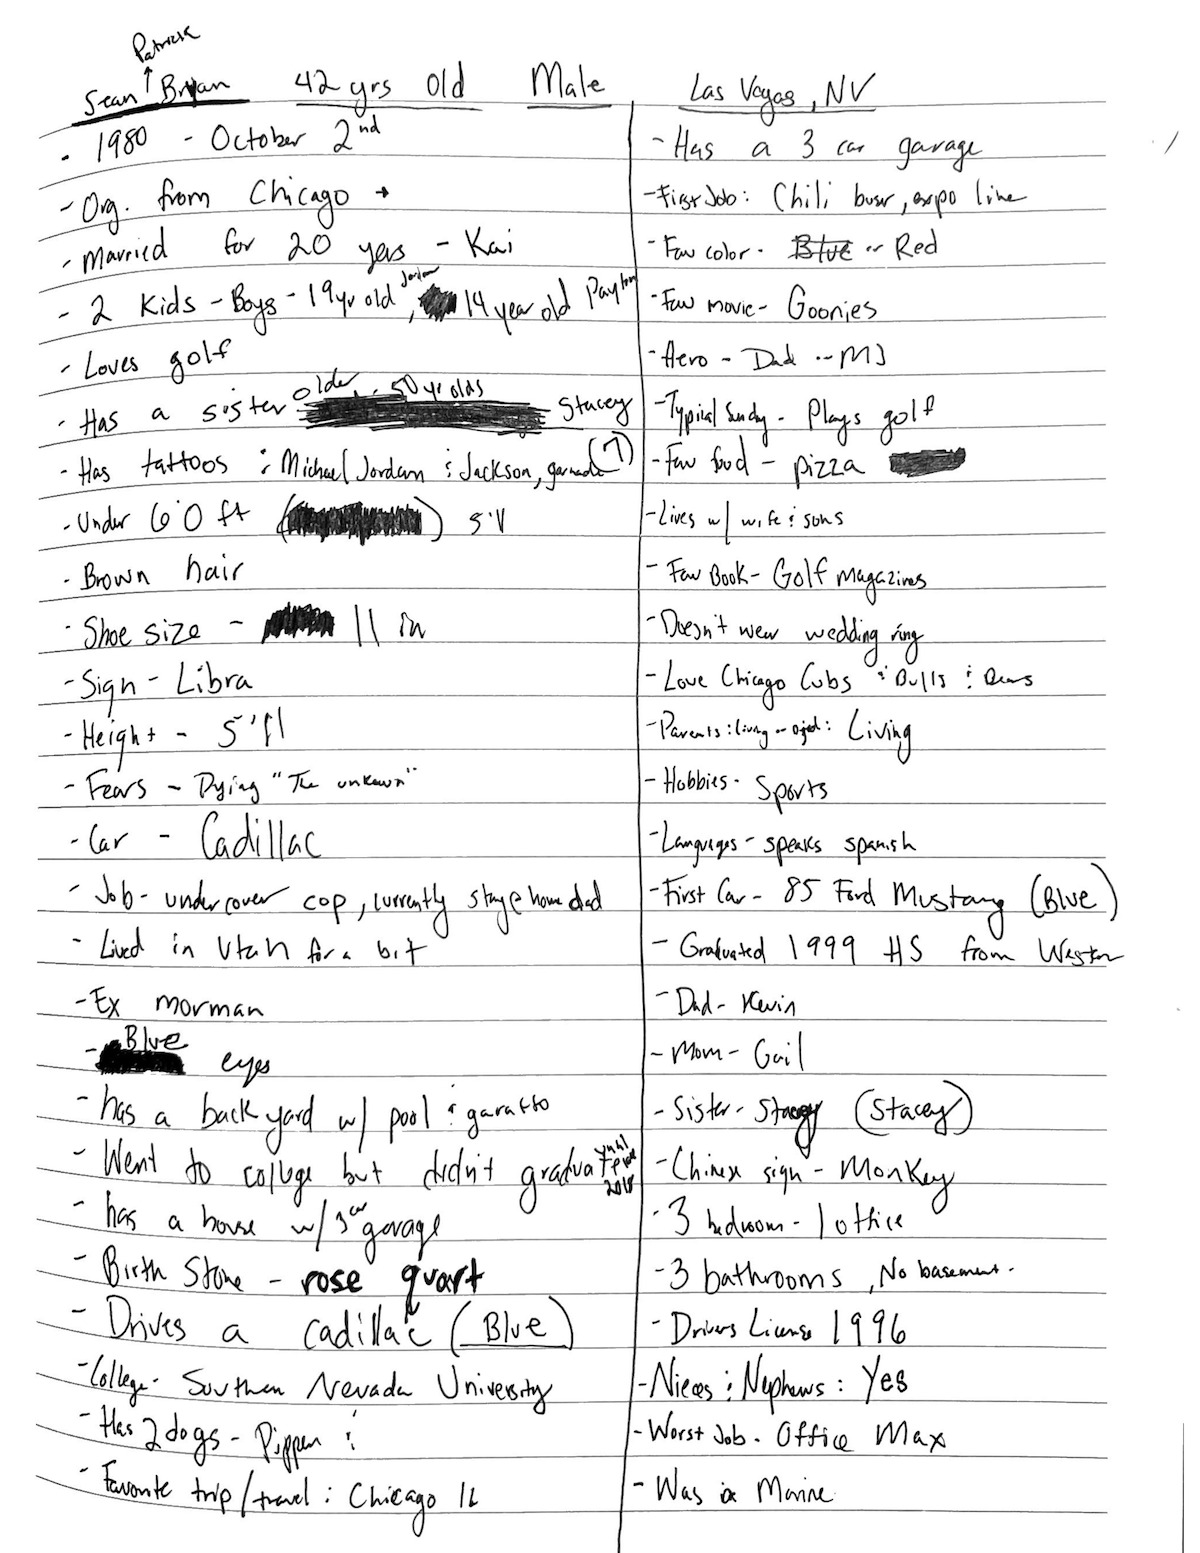 Patrick
Sean Bryan 42 yrs old Male Las Vegas, NV
- 1980 - October 2nd
- Org. from Chicago
- Married for 20 yers - Kai
- 2 Kids - Boys - 19 yr old Jordan, 14 year old Payton
- Loves golf
- Has a sister older 50 yr olds Stacey
- Has tattoos : Michael Jordan : Jackson, (7)
- Under 6'0 ft ( ) 5'11
- Brown hair
- Shoe size - 11 in
- Sign - Libra
- Height - 5'11
- Fears - Dying "The unknown"
- Car - Cadillac
- Job - undercover cop, currently stay @ home dad
- Lived in Utah for a bit
- Ex morman
- Blue eyes
- has a back yard w/ pool :
- Went to college but didn't graduate 2018
- has a house w/ 3 car garage
- Birth Stone - rose quart
- Drives a cadillac (Blue)
- College - Southern Nevada University
- Has 2 dogs - Pippen :
- Favorite trip/travel : Chicago IL
- Has a 3 car garage
- First Job : Chili busr, expo line
- Fav color - Blue or Red
- Fav movie - Goonies
- Hero - Dad - MJ
- Typical Sunday - Plays golf
- Fav food - pizza
- Lives w/ wife : sons
- Fav Book - Golf magazines
- Doesn't wear wedding ring
- Love Chicago Cubs : Bulls : Bears
- Parents : living or : Living
- Hobbies - Sports
- Languages - speaks spanish
- First Car - 85 Ford Mustang (Blue)
- Graduated 1999 HS from Western
- Dad - Kevin
- Mom - Gail
- Sister - Stacey (Stacey)
- Chinese sign - Monkey
- 3 bedroom - 1 office
- 3 bathrooms, No basement.
- Drivers License 1996
- Nieces : Nephews : Yes
- Worst Job - Office Max
- Was in Marine